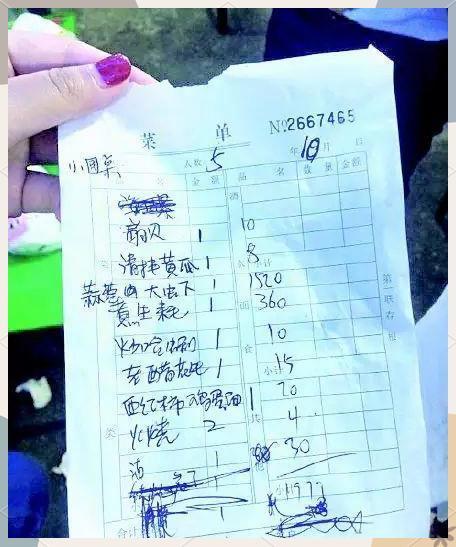 菜 单 №2667465
小圆桌 人数 5 年 10 月 日
品 名 金 额 品 名 数 量 金额
扇贝 1 10
清拌黄瓜 1 8
大虫下 1 1520
生耗 1 360
炒哈 1 10
老醋花生 1 15
西红柿鸡蛋面 1 20
火烧 2 4
1 30
1
1977
酒
面
食
小计
类
共
合计
第一联存根